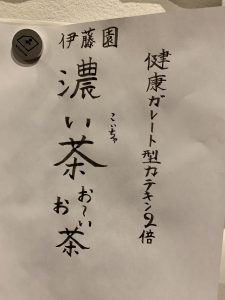 健康ガレート型カテキン2倍
伊藤園
濃い茶
こいちゃ
お〜いお茶